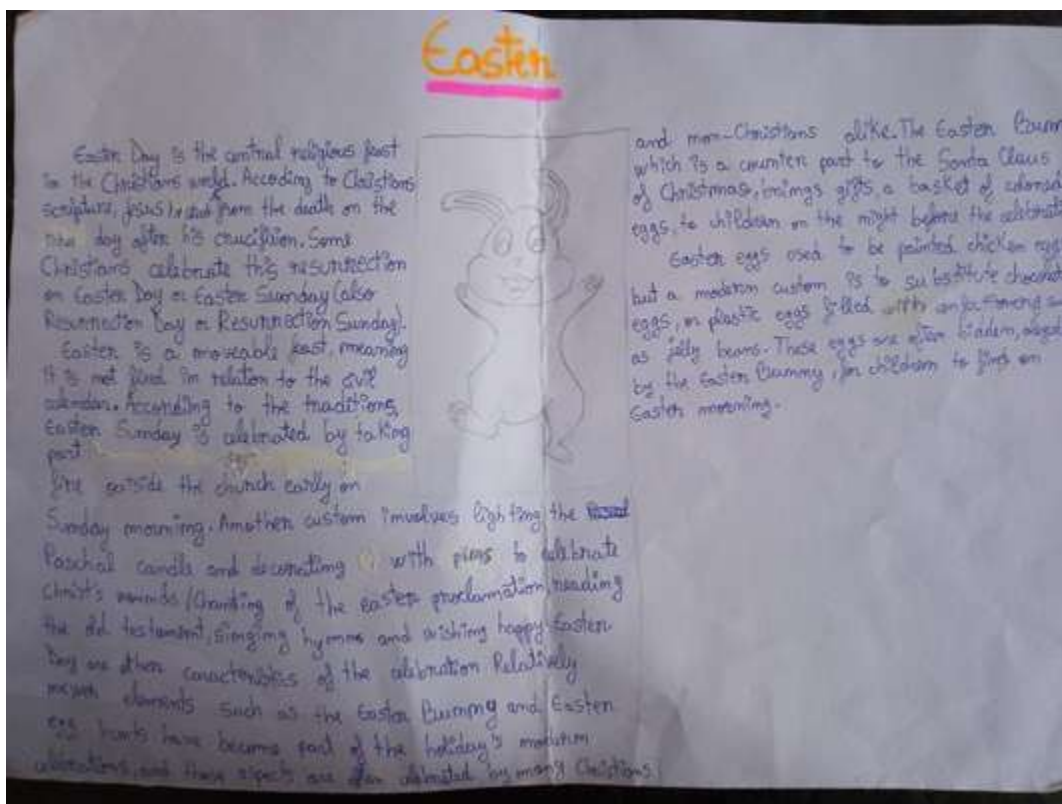 Easter
Easter Day is the central religious feast
in the Christians world. According to Christians
scripture, Jesus from the death on the
day after his crucifixion. Some
Christians celebrate this resurrection
on Easter Day or Easter Sunday (also
Resurrection Day or Resurrection Sunday).
Easter is a moveable feast, meaning
it is not fixed in relation to the civil
calendar. According to the traditions,
Easter Sunday is celebrated by taking
part
fire outside the church early on
Sunday morning. Another custom involves lighting the
Paschal candle and decorating with pins to celebrate
Christ's wounds/Chanting of the easter proclamation, reading
the old testament, singing hymns and wishing happy Easter
Day are other caracteristics of the celebration Relatively
elements such as the Easter Bunny and Easter
egg hunts have become part of the holiday's modern
celebrations, and those aspects are often celebrated by many Christians
and non-Christians alike. The Easter
which is a counter part to the Santa Claus
of Christmas, brings gifts, a basket of colored
eggs, to children on the night before the
Easter eggs used to be painted chicken
but a modern custom is to substitute
eggs, or plastic eggs filled with
as jelly beans. These eggs are often hidden,
by the Easter Bunny, for children to find on
Easter morning.